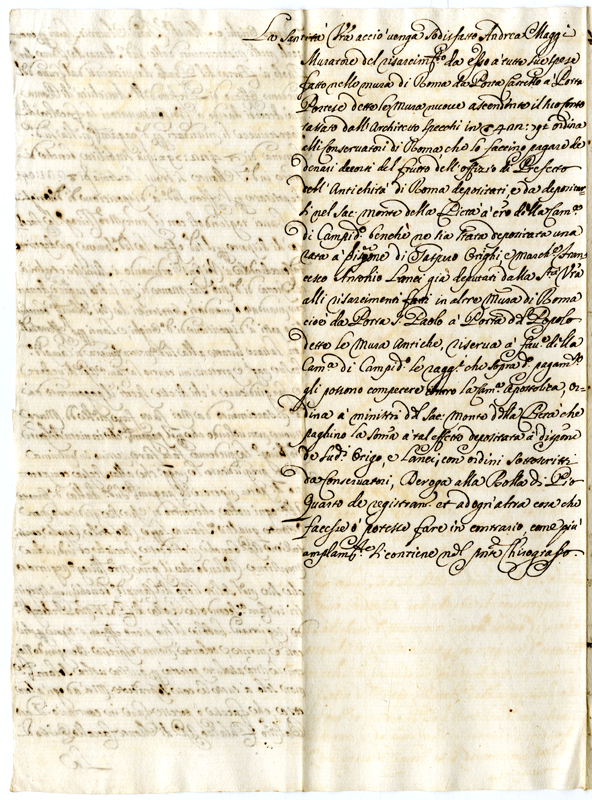 La Santità Vrã acciò venga Sodisfatto Andrea Maggi
Muratore del risarcim.to da esso à tutte sue spese
fatto nelle mura di Roma da Porta à Porta
Portese dette le Mura nuove ascendente il
tassato dall'Architetto Specchi in ordina
alli Conservatori di Roma che lo faccino pagare de
denari decorsi del frutto dell'offizio di Prefetto
dell'Antichità di Roma depositati e da depositar
si nel Sac: monte della Pietà à crõ della Cam.a
di Campid.o benche ne sia stata depositata una
rata à dispone di Gaspero Orighi e March. Fran
cesco Antonio Lanci già deputati dalla S.tà Vrã
alli risarcimenti fatti in altre Mura di Roma
cioè da Porta S. Paolo à Porta del Popolo
dette le Mura Antiche, riserva à fau.e della
Cam.a di Campid.o le ragg.i che sopra d.o pagam.to
gli possono competere contro la Cam.a Apostolica, or=
dina à ministri del Sac: Monte della Pietà che
paghino la somã à tal effetto depositata à dispone
de sud.i Origo, e Lanci, con ordini sottoscritti
da Conservatori, Deroga alla Bolla di Pio
Quarto de registran. et ad ogn'altra cosa che
facesse ò potesse fare in contrario come più
amplam.te si contiene nel pñte Chirografo.